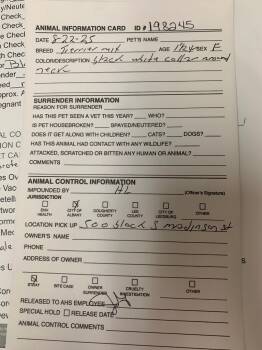 ANIMAL INFORMATION CARD ID# 198245
DATE 8-22-25 PET'S NAME
BREED Terrier mix AGE SEX F
COLOR/DESCRIPTION black white collar around
neck
SURRENDER INFORMATION
REASON FOR SURRENDER
HAS THIS PET SEEN A VET THIS YEAR? WHO?
IS PET HOUSEBROKEN? SPAYED/NEUTERED?
DOES IT GET ALONG WITH CHILDREN? CATS? DOGS?
HAS THIS ANIMAL HAD CONTACT WITH ANY WILDLIFE?
ATTACKED, SCRATCHED OR BITTEN ANY HUMAN OR ANIMAL?
COMMENTS
ANIMAL CONTROL INFORMATION
IMPOUNDED BY AL
JURISDICTION (Owner's Signature)
ENV HEALTH CITY OF ALBANY DOUGHERTY COUNTY LEE COUNTY CITY OF LEESBURG OTHER
LOCATION PICK UP 500 block S madison st
OWNER'S NAME
PHONE
ADDRESS OF OWNER
STRAY BITE CASE OWNER SURRENDER CRUELTY INVESTIGATION OTHER
RELEASED TO AHS EMPLOYEE
SPECIAL HOLD RELEASE DATE
ANIMAL CONTROL COMMENTS